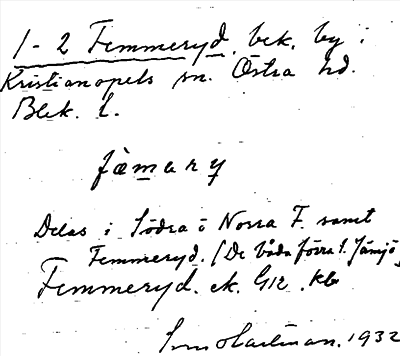 1-2 Femmeryd, bek. by i
Kristianopels sn. Östra hd.
Blek. l.
fàmary
Delas i Södra o Norra F. samt
Femmeryd. (De båda förra i Jämjö,
Femmeryd. ek. G12. Kb
Hartman. 1932